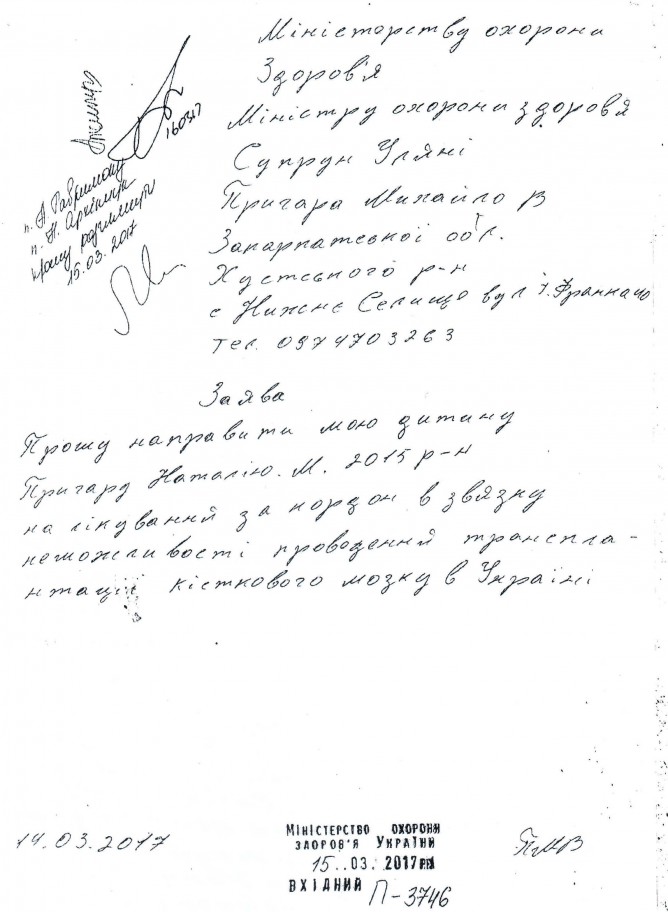 Міністерству охорона
Здоров'я
Міністру охорони здоровя
Супрун Уляні
Пригара Михайло В
Закарпатської обл.
Хустського р-н
с Нижнє Селище вул І. Франка
тел. 0974703263
п. А. Гаврилюку
п. Н.
прошу розглянути
15.03.2017
160317
Заява
Прошу направити мою дитину
Пригара Наталію. М. 2015 р-н
на лікування за кордон в звязку
неможливості проведення транспла-
нтації кісткового мозку в Україні
14.03.2017
ПМВ
МІНІСТЕРСТВО ОХОРОНИ
ЗДОРОВ'Я УКРАЇНИ
15..03. 2017
ВХІДНИЙ П-3746